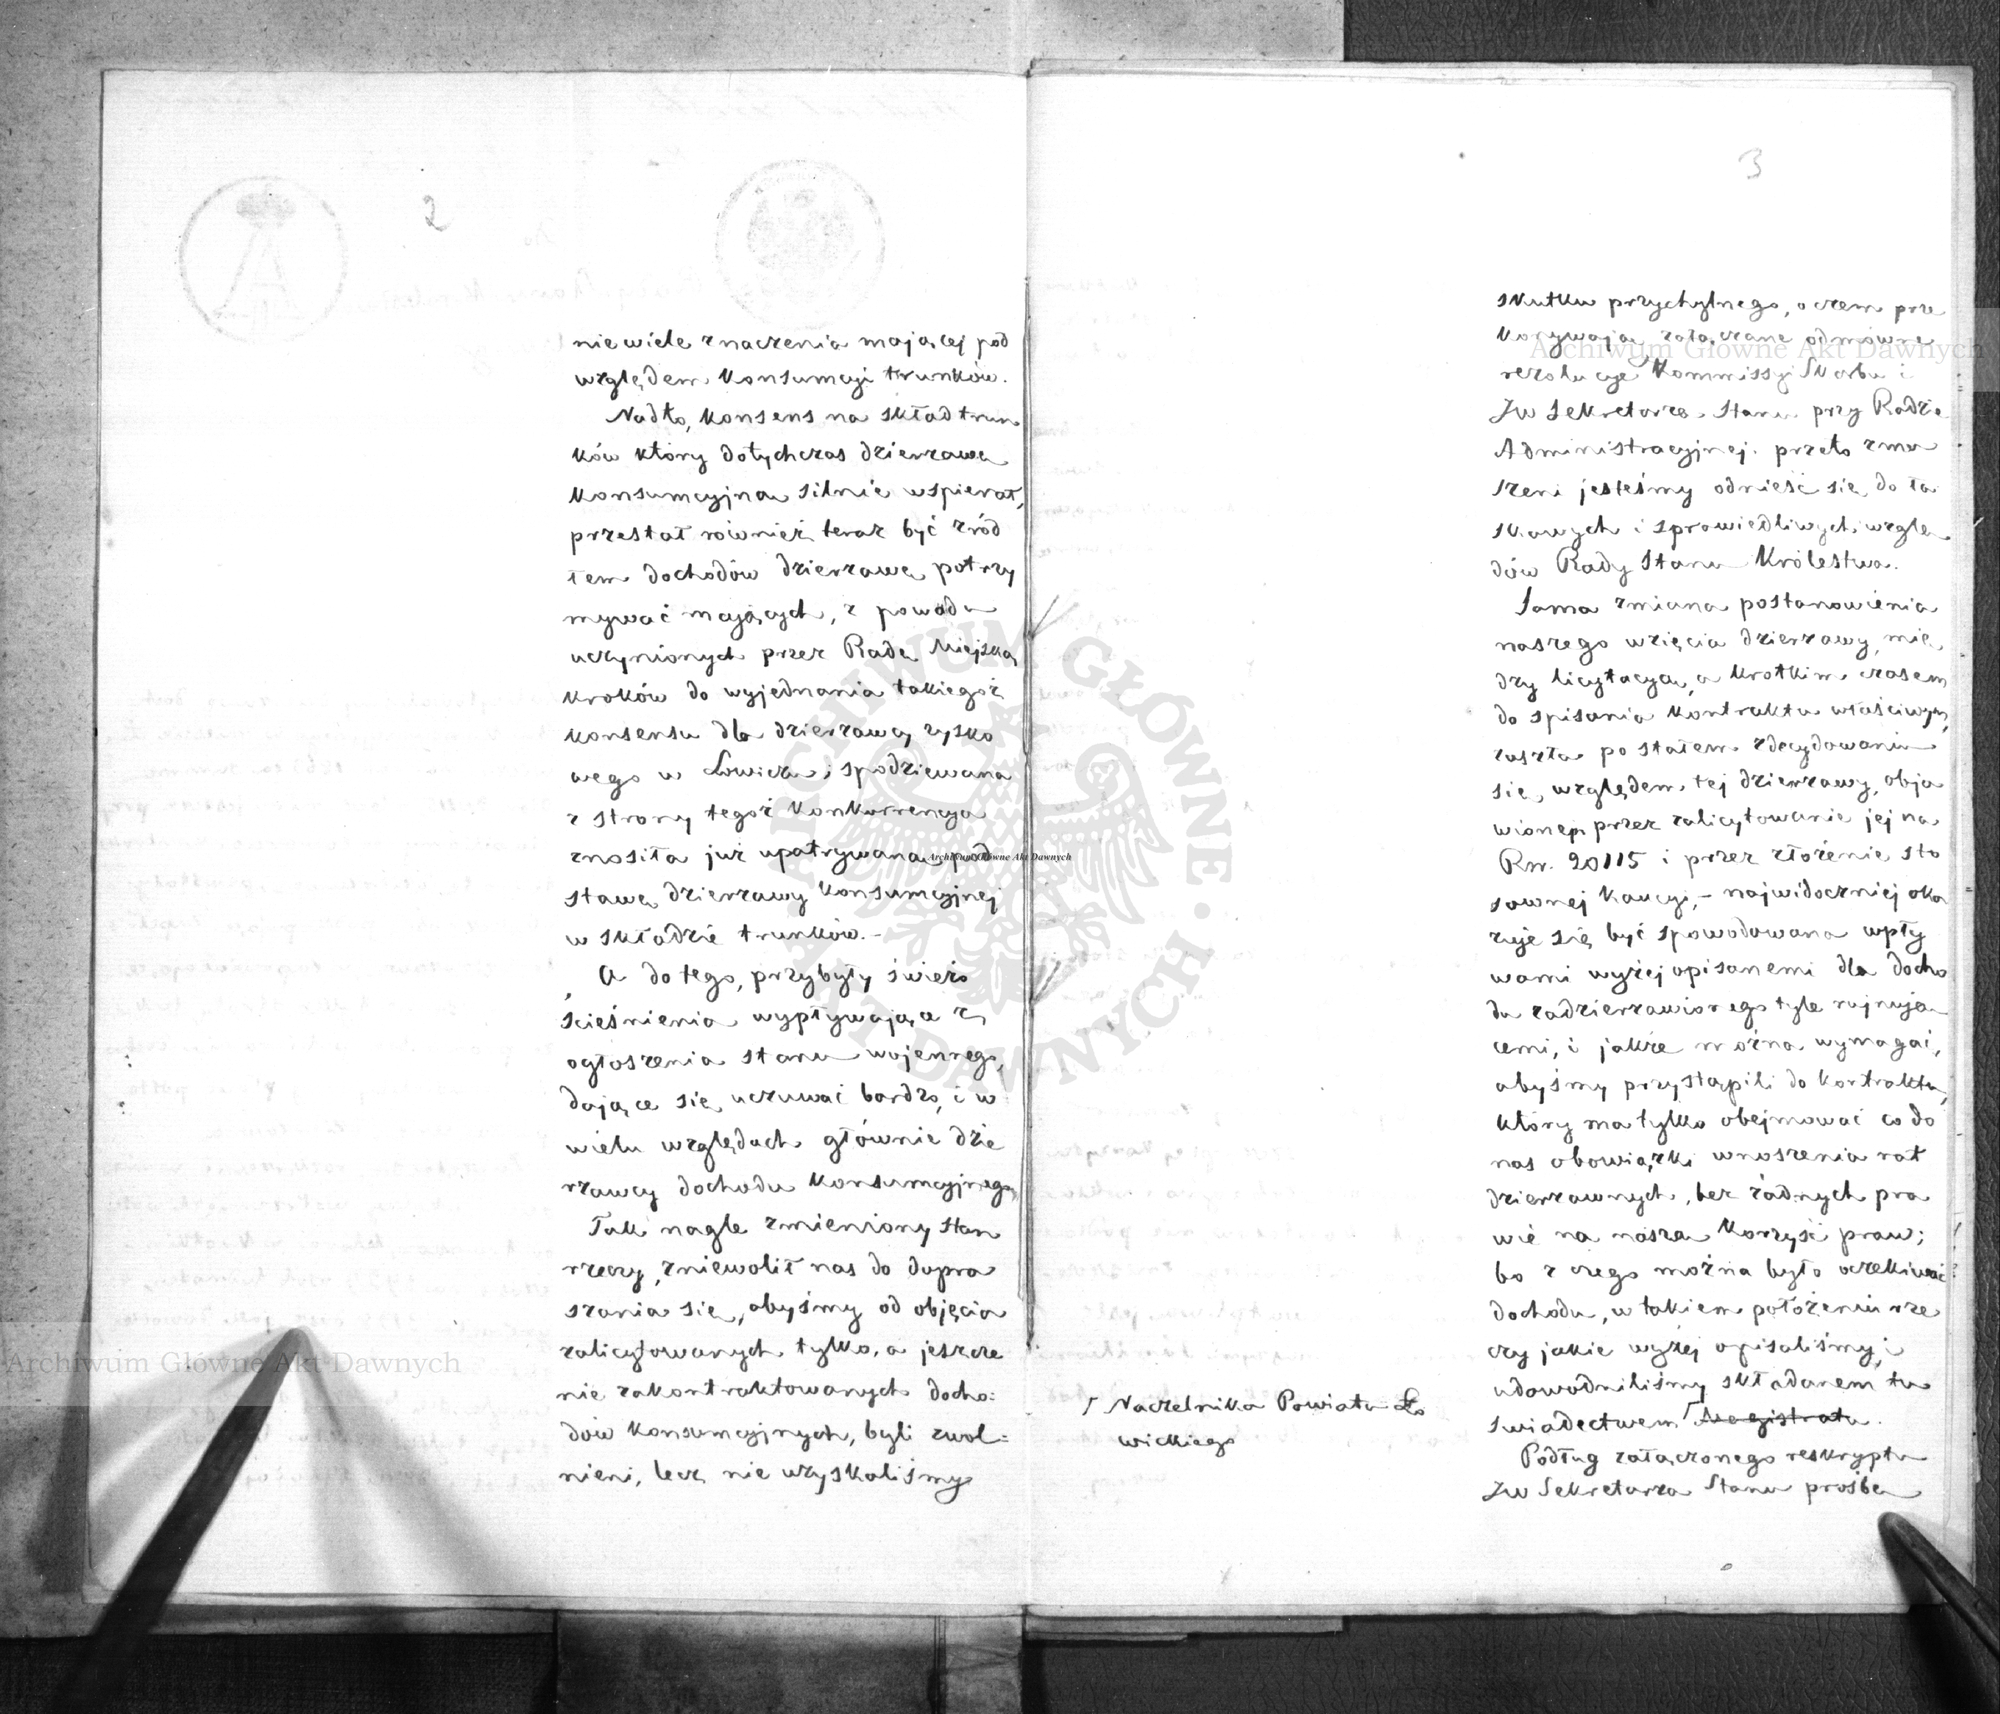 2
niewiele znaczenia mającej pod
względem konsumcyi trunków.
Nadto, konsens na skład trun
ków który dotychczas dzierzawę
konsumcyjną silnie wspierał,
przestał również teraz być zród
łem dochodów dzierzawę potrzy
mywać mających, z powodu
uczynionych przez Radę Miejską
kroków do wyjednania takiegoż
konsensu dla dzierzawcy zysko
wego w Łowiczu; spodziewana
z strony tegoż konkurrencya
znosiła już upatrywaną pod
stawę dzierzawy konsumcyjnej
w składzie trunków. –
A do tego, przybyły świeżo
ścieśnienia wypływające z
ogłoszenia stanu wojennego,
dające się uczuwać bardzo, i w
wielu względach głównie dzie
rzawcy dochodu konsumcyjnego,
Tak nagle zmieniony stan
rzeczy, zniewolił nas do dopra
szania się, abyśmy od objęcia
zalicytowanych tylko, a jeszcze
nie zakontraktowanych docho:
dów konsumcyjnych, byli zwol:
nieni, lecz nie uzyskaliśmy
3
skutku przychylnego, o czem prze
konywają załączane odmówne
rezolucye Kommissyi Skarbu i
JW Sekretarza Stanu przy Radzie
Administracyjnej. przeto zmu
szeni jesteśmy odnieść się do ła
skawych i sprawiedliwych wzglę
dów Rady Stanu Królestwa.
Sama zmiana postanowienia
naszego wzięcia dzierzawy, mię
dzy licytacyą, a krótkim czasem
do spisania kontraktu właściwym,
zaszła po stałem zdecydowaniu
się względem tej dzierzawy, obja
wionem przez zalicytowanie jej na
Rsr. 20115 i przez złożenie sto
sownej kaucyi, – najwidoczniej oka
zuje się być spowodowana wpły
wami wyżej opisanemi dla docho
du zadzierzawionego tyle rujnują
cemi, i jakże można wymagać,
abyśmy przystąpili do kontraktu,
który ma tylko obejmować co do
nas obowiązki wnoszenia rat
dzierzawnych, bez żadnych pra
wie na naszą korzyść praw;
bo z czego można było oczekiwać
dochodu, w takiem położeniu rze
czy jakie wyżej opisaliśmy i
udowodniliśmy składanem tu
świadectwem ⌈ Magistratu.
⌈ Naczelnika Powiatu Ło
wickiego
Podług załączonego reskryptu
JW Sekretarza Stanu prośbę
Archiwum Główne Akt Dawnych
Archiwum Główne Akt Dawnych
Archiwum Główne Akt Dawnych
ARCHIWUM GŁÓWNE AKT DAWNYCH